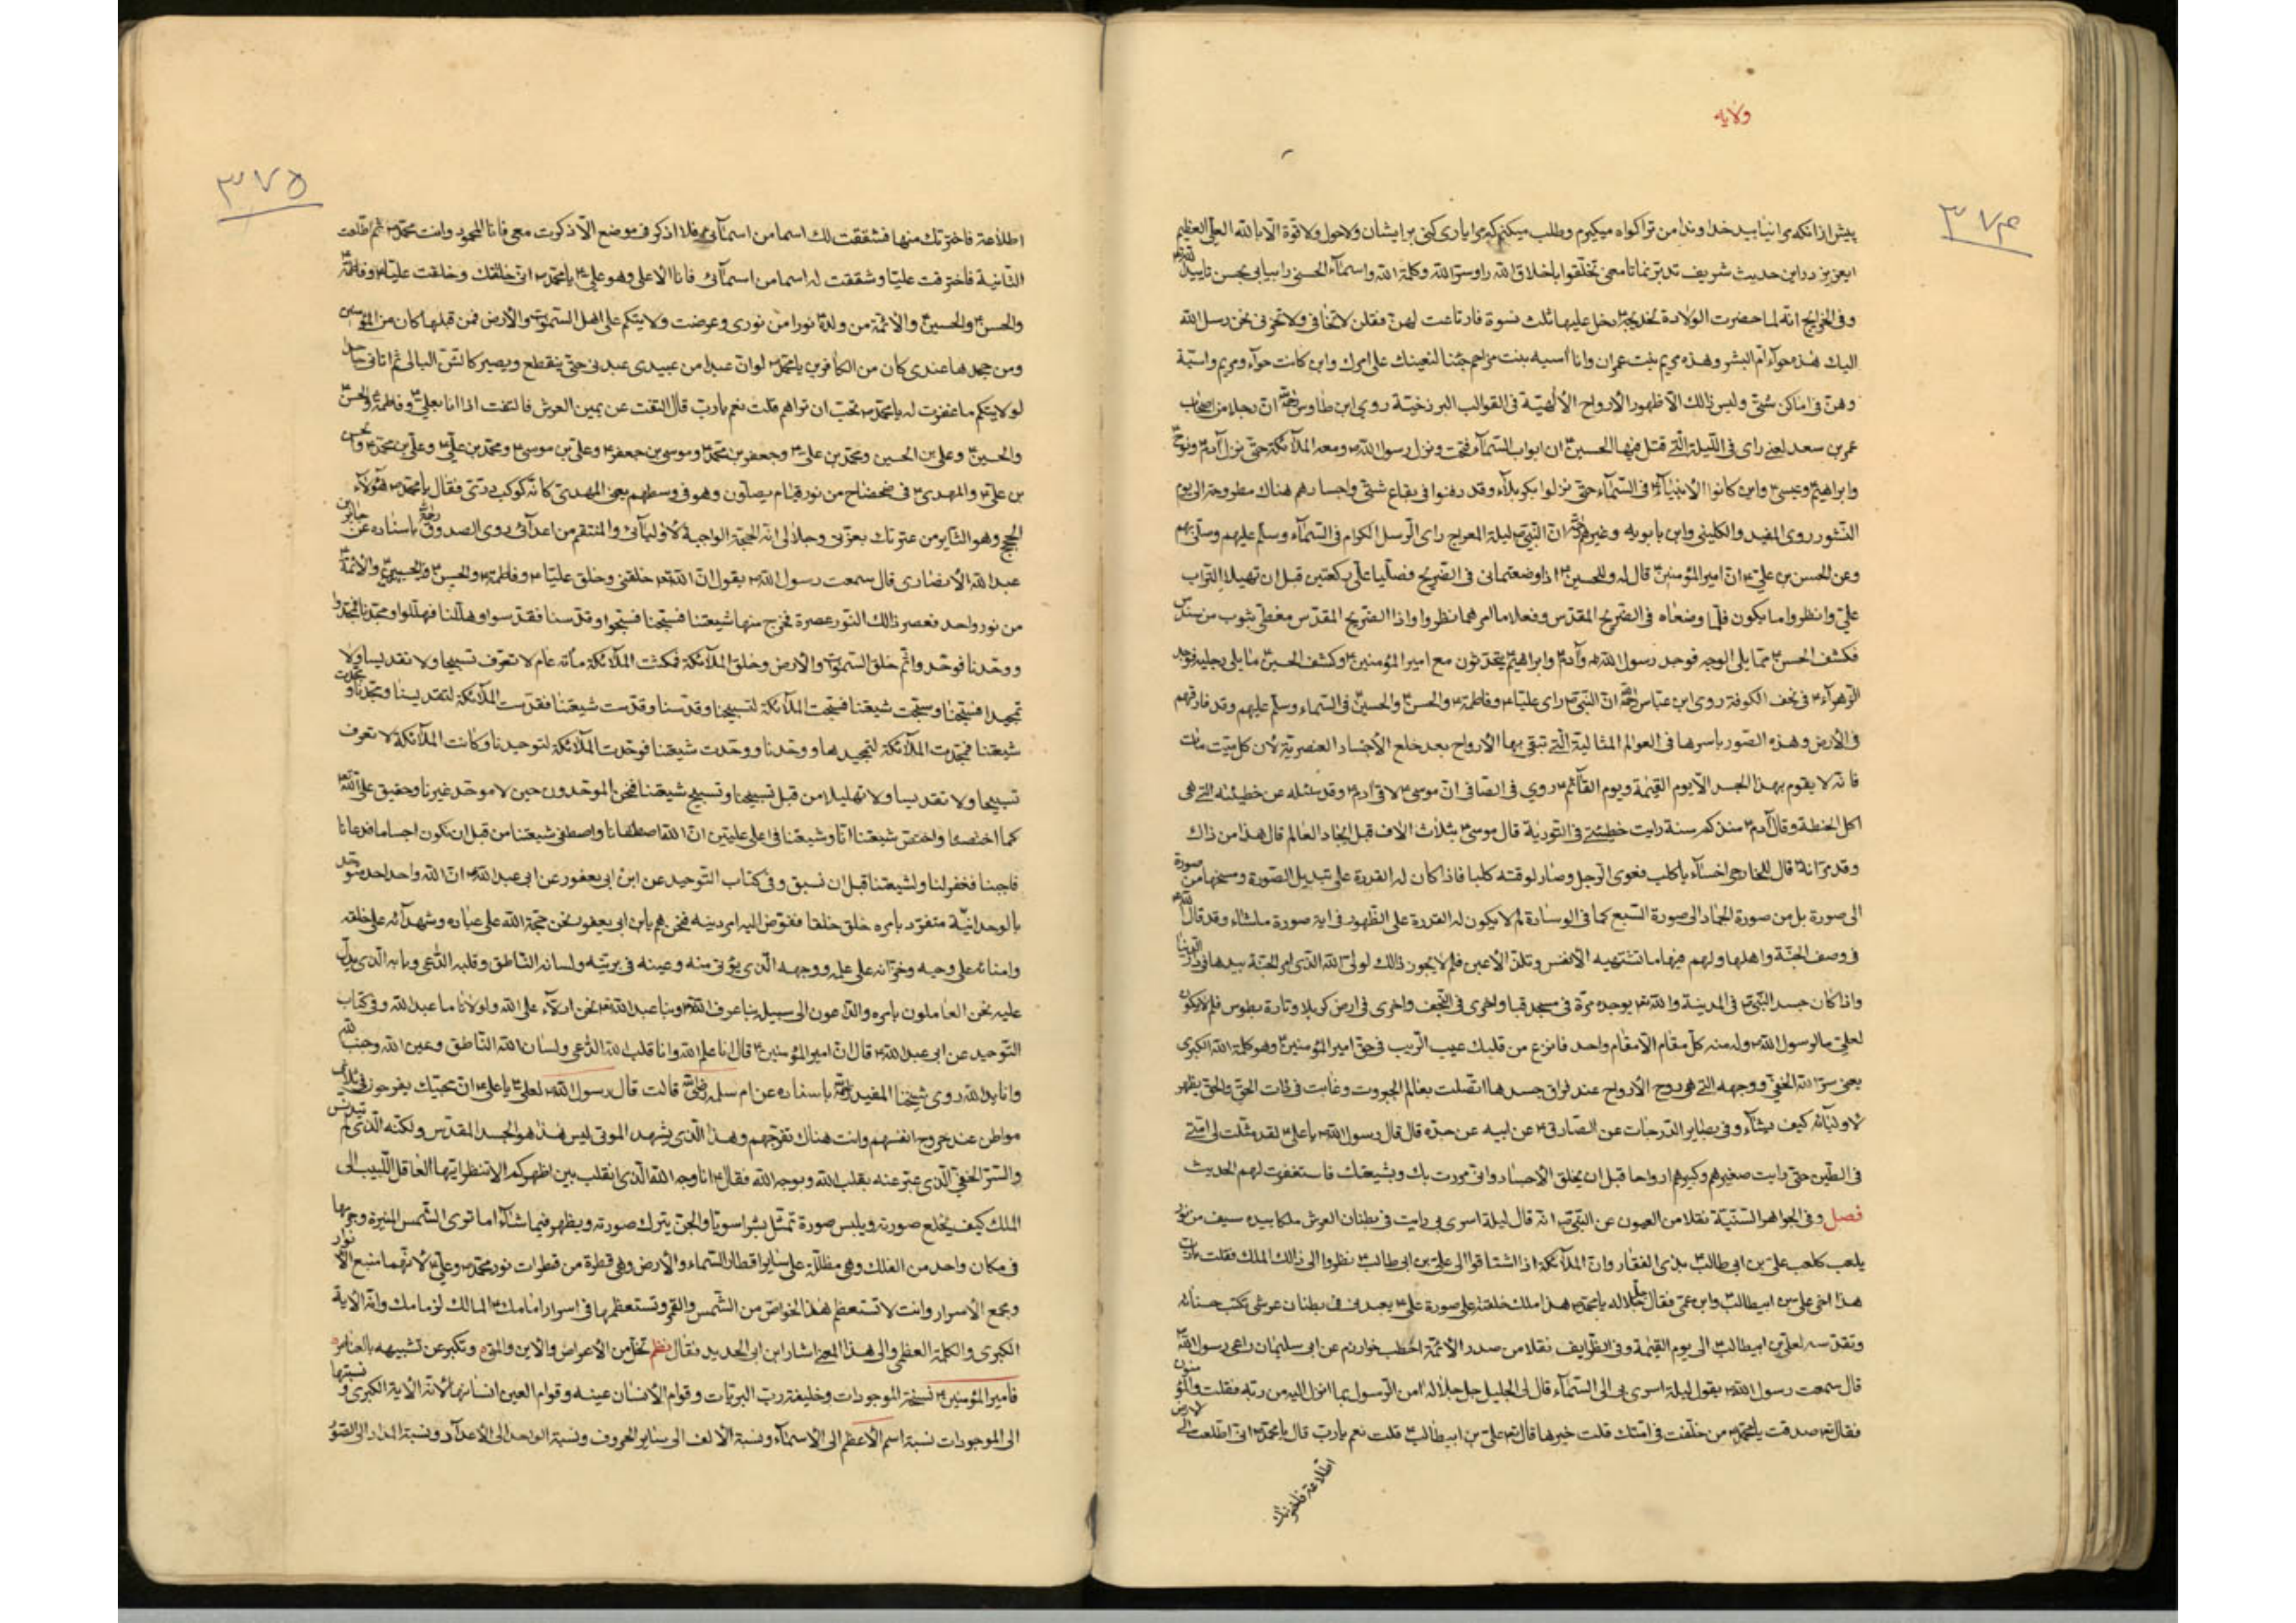 ولایه
۳۷۴
پیش از انکه مرا نیابید خداوندا من ترا کواه میکیرم وطلب میکنم که مرا یاری کنی بر ایشان ولاحول ولاقوة الا بالله العلی العظیم
ایعزیز درین حدیث شریف تدبر نما تا معنی تخلقوا باخلاق الله را وسر الله وکلمة الله واسماء الحسنی را بیابی بحسن تایید الله
وفی الخرایج انه لما حضرت الولادة لخدیجة دخل علیها ثلث نسوة فارتاعت لهن فقلن لا تخافی ولا تحزنی نحن رسل الله
الیک هذه حواء ام البشر وهذه مریم بنت عمران وانا آسیه بنت مزاحم جئنا لنعینک علی امرک واین کانت حواء ومریم واسیة
وهن فی اماکن شتی ولیس ذلک الا ظهور الارواح الالهیة فی القوالب البرزخیة روی ابن طاوس ان رجلا من اصحاب
عمر بن سعد لعنه رای فی اللیلة التی قتل فیها الحسین ان ابواب السماء فتحت ونزل رسول الله ومعه الملائکة حتی نزل آدم ونوح
وابراهیم وعیسی واین کانوا الانبیاء فی السماء حتی نزلوا بکربلاء وقد دفنوا فی بقاع شتی واجسادهم هناک مطروحة الی یوم
النشور روی المفید والکلینی وابن بابویه وغیرهم ان النبی لیلة المعراج رای الرسل الکرام فی السماء وسلم علیهم وصلی بهم
وعن الحسن بن علی ان امیرالمؤمنین قال له وللحسین اذا وضعتمانی فی الضریح فصلیا علی رکعتین قبل ان تهیلا التراب
علی وانظروا ما یکون فلما وضعاه فی الضریح المقدس وفعلا ما امرهما نظروا واذا الضریح المقدس مغطی بثوب من سندس
فکشف الحسن مما یلی الوجه فوجد رسول الله وآدم وابراهیم یتحدثون مع امیرالمؤمنین وکشف الحسین مما یلی رجلیه فوجد
الزهراء فی نجف الکوفة روی ابن عباس ان النبی رای علیا وفاطمة والحسن والحسین فی السماء وسلم علیهم وقد فارقهم
فی الارض وهذه الصور باسرها فی العوالم المثالیة التی تبقی بها الارواح بعد خلع الاجساد العنصریة لان کل میت مات
فانه لا یقوم بهذا الجسد الا یوم القیمة ویوم القائم روی فی الصافی ان موسی لاقی آدم وقد سئله عن خطیئته التی هی
اکل الحنطة وقال آدم منذ کم سنة رایت خطیئتی فی التوریة قال موسی بثلاث الاف قبل ایجاد العالم قال هذا من ذاک
وقد مر انه قال للخارجی اخسأ یا کلب فعوی الرجل وصار لوقته کلبا فاذا کان له القدرة علی تبدیل الصورة ومسخها من صورة
الی صورة بل من صورة الجماد الی صورة السبع کما فی الوسادة لم لا یکون له القدرة علی الظهور فی ایة صورة ما شاء وقد قال الله
فی وصف الجنة واهلها ولهم فیها ما تشتهیه الانفس وتلذ الاعین فلم لا یجوز ذلک لولی الله الذی امر الجنة بیدها فی دار الدنیا
واذا کان جسد النبی فی المدینة والله یوجده مرة فی مسجد قبا واخری فی النجف واخری فی ارض کربلا وتارة بطوس فلم لا یکون
لعلی ما لرسول الله وله منه کل مقام الا مقام واحد فانزع من قلبک عیب الریب فی حق امیرالمؤمنین وهو کلمة الله الکبری
یعنی سر الله الخفی ووجهه التی هی روح الارواح عند فراق جسدها اتصلت بعالم الجبروت وغابت فی ذات الحق والحق یظهر
لاولیائه کیف یشاء وفی بصایر الدرجات عن الصادق عن ابیه عن جده قال قال رسول الله یا علی لقد مثلت لی امتی
فی الطین حتی رایت صغیرهم وکبیرهم ارواحا قبل ان یخلق الاجساد وانی مررت بک وبشیعتک فاستغفرت لهم الحدیث
فصل وفی الجواهر السنیة نقلا من العیون عن النبی انه قال لیلة اسری بی رایت فی بطنان العرش ملکا بیده سیف من نور
یلعب کما یلعب علی بن ابی طالب بذی الفقار وان الملائکة اذا اشتاقوا الی علی بن ابی طالب نظروا الی ذلک الملک فقلت یا رب
هذا اخی علی بن ابیطالب وابن عمی فقال جل جلاله یا محمد هذا ملک خلقته علی صورة علی یعبدنی فی بطنان عرشی تکتب حسناته
وتقدیسه لعلی بن ابیطالب الی یوم القیمة وفی الطرایف نقلا من صدر الائمة اخطب خوارزم عن ابی سلیمان راعی رسول الله
قال سمعت رسول الله یقول لیلة اسری بی الی السماء قال لی الجلیل جل جلاله امن الرسول بما انزل الیه من ربه فقلت والمؤمنون
فقال صدقت یا محمد من خلفت فی امتک قلت خیرها قال علی بن ابیطالب قلت نعم یا رب قال یا محمد انی اطلعت الی الارض
اطلاعة فاخترتک
۳۷۵
اطلاعة فاخترتک منها فشققت لک اسما من اسمائی فلا اذکر فی موضع الا ذکرت معی فانا المحمود وانت محمد ثم اطلعت
الثانیة فاخترت علیا وشققت له اسما من اسمائی فانا الاعلی وهو علی یا محمد انی خلقتک وخلقت علیا وفاطمة
والحسن والحسین والائمة من ولده نورا من نوری وعرضت ولایتکم علی اهل السموات والارض فمن قبلها کان من المؤمنین
ومن جحدها عندی کان من الکافرین یا محمد لو ان عبدا من عبیدی عبدنی حتی ینقطع ویصیر کالشن البالی ثم اتانی جاحدا
لولایتکم ما غفرت له یا محمد تحب ان تراهم قلت نعم یا رب قال التفت عن یمین العرش فالتفت اذا انا بعلی وفاطمة والحسن
والحسین وعلی بن الحسین ومحمد بن علی وجعفر بن محمد وموسی بن جعفر وعلی بن موسی ومحمد بن علی وعلی بن محمد والحسن
بن علی والمهدی فی ضحضاح من نور قیام یصلون وهو فی وسطهم یعنی المهدی کانه کوکب دری فقال یا محمد هؤلاء
الحجج وهو الثایر من عترتک بعزتی وجلالی انه الحجة الواجبة لاولیائی والمنتقم من اعدائی روی الصدوق باسناده عن جابر بن
عبد الله الانصاری قال سمعت رسول الله یقول ان الله خلقنی وخلق علیا وفاطمة والحسن والحسین والائمة
من نور واحد فعصر ذلک النور عصرة فخرج منها شیعتنا فسبحنا فسبحوا وقدسنا فقدسوا وهللنا فهللوا ومجدنا فمجدوا
ووحدنا فوحدوا ثم خلق السموات والارض وخلق الملائکة فمکثت الملائکة مأته عام لا تعرف تسبیحا ولا تقدیسا ولا
تمجیدا فسبحنا وسبحت شیعتنا فسبحت الملائکة لتسبیحنا وقدسنا وقدست شیعتنا فقدست الملائکة لتقدیسنا ومجدنا ومجدت
شیعتنا فمجدت الملائکة لتمجیدها ووحدنا ووحدت شیعتنا فوحدت الملائکة لتوحیدنا وکانت الملائکة لا تعرف
تسبیحا ولا تقدیسا ولا تهلیلا من قبل تسبیحنا وتسبیح شیعتنا فنحن الموحدون حین لا موحد غیرنا وحقیق علی الله
کما اختصنا واختص شیعتنا انا وشیعتنا فی اعلی علیین ان الله اصطفانا واصطفی شیعتنا من قبل ان نکون اجساما فدعانا
فاجبنا فغفر لنا ولشیعتنا قبل ان نسبق وفی کتاب التوحید عن ابن ابی یعفور عن ابی عبد الله ان الله واحد احد متوحد
بالوحدانیة متفرد بامره خلق خلقا ففوض الیه امر دینه فنحن هم یابن ابی یعفور نحن حجة الله علی عباده وشهدائه علی خلقه
وامنائه علی وحیه وخزانه علی علمه ووجهه الذی یؤتی منه وعینه فی بریته ولسانه الناطق وقلبه الداعی وبابه الذی یدل
علیه نحن العاملون بامره والداعون الی سبیله بنا عرف الله وبنا عبد الله نحن ادلاء علی الله ولولانا ما عبد الله وفی کتاب
التوحید عن ابی عبدالله قال ان امیرالمؤمنین قال انا علم الله وانا قلب الله الداعی ولسان الله الناطق وعین الله وجنب الله
وانا ید الله روی شیخنا المفید باسناده عن ام سلمه قالت قال رسول الله لعلی یا علی ان محبیک یفرحون فی ثلاث
مواطن عند خروج انفسهم وانت هناک تفرحهم وهذا الذی یشهد الموتی لیس هذا هو الجسد المقدس ولکنه الذی لم یتدنس
والسر الخفی الذی عبر عنه بقلب الله وبوجه الله فقال انا وجه الله الذی اتقلب بین اظهرکم الا تنظر ایها العاقل اللبیب الی
الملک کیف یخلع صورته ویلبس صورة تمثل بشرا سویا والجن یترک صورته ویظهر فیما شاء اما تری الشمس المنیرة وجرمها
فی مکان واحد من الفلک وهی مظلة علی سایر اقطار السماء والارض وهی قطرة من قطرات نور محمد وعلی لانهما منبع الانوار
ومجمع الاسرار وانت لا تستعظم هذا الخواص من الشمس والقمر وتستعظمها فی اسرار امامک المالک لزمامک وانه الایة
الکبری والکلمة العظمی والی هذا المعنی اشار ابن ابی الحدید فقال نظم تقیل من الاعراض والاین والمتی وتکبر عن تشبیهه بالعناصر
فامیرالمؤمنین نسخة الموجودات وخلیفة رب البریات وقوام الانسان عینه وقوام العین انسانها لانه الایة الکبری ونسبتها
الی الموجودات نسبة اسم الاعظم الی الاسماء ونسبة الالف الی سایر الحروف ونسبة الواحد الی الاعداد ونسبة المداد الی الصور